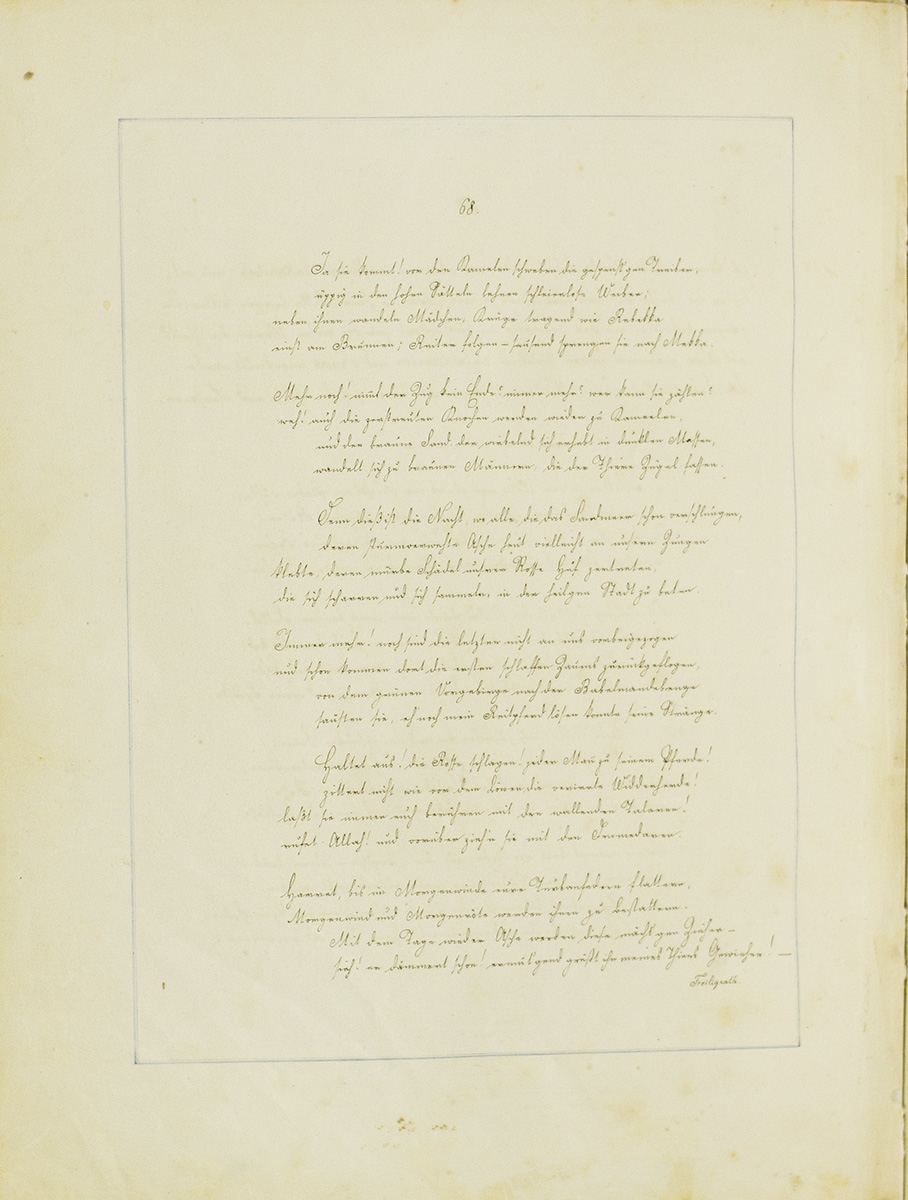 68.
Ja sie kommt! vor den Kamelen schweben die gespenst'gen Treiber,
üppig in den hohen Sätteln lehnen schleierlose Weiber;
neben ihnen wandeln Mädchen, Krüge tragend wie Rebekka
einst am Brunnen; Reiter folgen – sausend sprengen sie nach Mekka.
Mehr noch! nimmt der Zug kein Ende? immer mehr? wer kann sie zählen?
weh! auch die zerstreuten Knochen werden wieder zu Kameelen,
und der braune Sand, der wirbelnd sich erhebt in dunklen Massen,
wandelt sich zu braunen Männern, die der Thiere Zügel fassen.
Denn dieß ist die Nacht, wo alle, die das Sandmeer schon verschlungen,
deren sturmverwehte Asche heut vielleicht an unsern Zungen
klebte, deren mürbe Schädel unsrer Rosse Huf zertreten,
die sich scharren und sich sammeln, in der heilgen Stadt zu beten.
Immer mehr! noch sind die letzten nicht an uns vorbeigezogen
und schon kommen dort die ersten schlaffen Zaums zurückgeflogen,
von dem grünen Vorgebirge nach der Babelmandebenge
sausten sie, eh' noch mein Reitpferd lösen konnte seine Stränge.
Haltet aus! die Rosse schlagen! jeder Mann zu seinem Pferde!
zittert nicht wie vor dem Löwen die verirrte Widderheerde!
laßt sie immer euch berühren mit den wallenden Talaren!
rufet: Allah! und vorüber zieh'n sie mit den Dromedaren.
Harret, bis im Morgenwinde eure Turbanfedern flattern,
Morgenwind und Morgenröte werden ihnen zu Bestattern.
Mit dem Tage wieder Asche werden diese nächt'gen Zieher –
sieh! er dämmert schon! ermut'gend grüßt ihn meines Thiers Gewieher! –
Freiligrath.